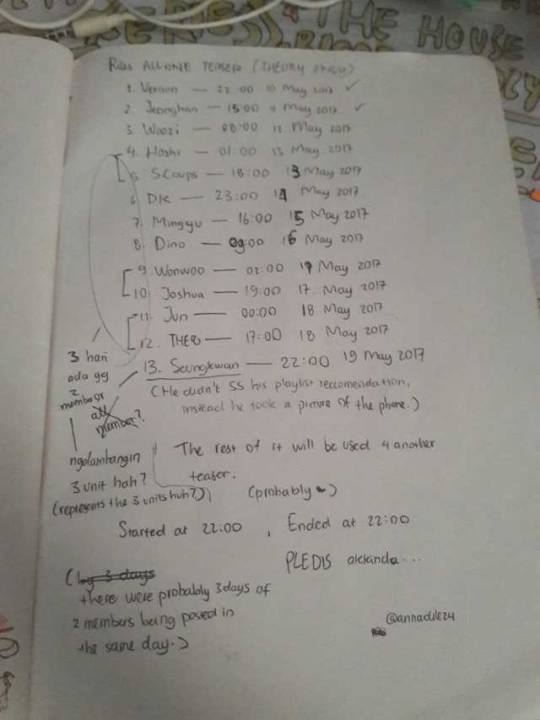 THE HOUSE
Rules ALONE TEASER (THEORY ONLY)
1. Vernon — 22:00 10 May 2017 ✓
2. Jeonghan — 15:00 11 May 2017 ✓
3. Woozi — 08:00 12 May 2017
4. Hoshi — 01:00 13 May 2017
5 SCoups — 18:00 13 May 2017
6 DK — 23:00 14 May 2017
7. Mingyu — 16:00 15 May 2017
8. Dino — 09:00 16 May 2017
9 Wonwoo — 02:00 17 May 2017
10. Joshua — 19:00 17. May 2017
11. Jun — 00:00 18 May 2017
12. THE8 — 17:00 18 May 2017
13. Seungkwan — 22:00 19 May 2017
(He didn't SS his playlist reccomendation,
instead he took a picture of the phone.)
3 hari
ada yg
2
member
all
member?
ngelambangin
3 unit hah?
(represents the 3 units huh?)
The rest of it will be used 4 another
teaser.
(probably)
Started at 22:00 , Ended at 22:00
PLEDIS
(by 3 days
there were probably 3 days of
2 members being posted in
the same day.)
@annadle24